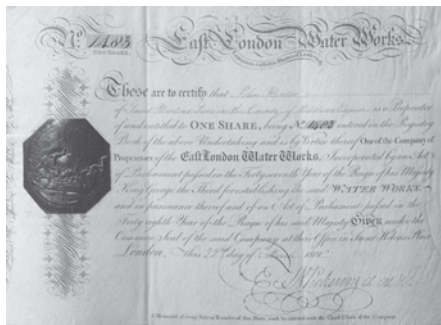 No. 1483
NEW SHARE.
East London Water Works.
These are to certify that
of Saint Martins Lane in the County of Middlesex is a Proprietor
of and entitled to ONE SHARE, being No. 1483 entered in the Registry
Book of the above Undertaking and is by Virtue thereof One of the Company of
Proprietors of the East London Water Works. Incorporated by an Act
of Parliament passed in the Forty seventh Year of the Reign of his Majesty
King George the Third for establishing the said WATER WORKS
and in pursuance thereof and of an Act of Parliament passed in the
Forty eighth Year of the Reign of his said Majesty GIVEN under the
Common Seal of the said Company at their Office in Saint Helens Place
London, this 22d day of
A Memorial of every Sale or Transfer of this Share must be entered with the Chief Clerk of the Company